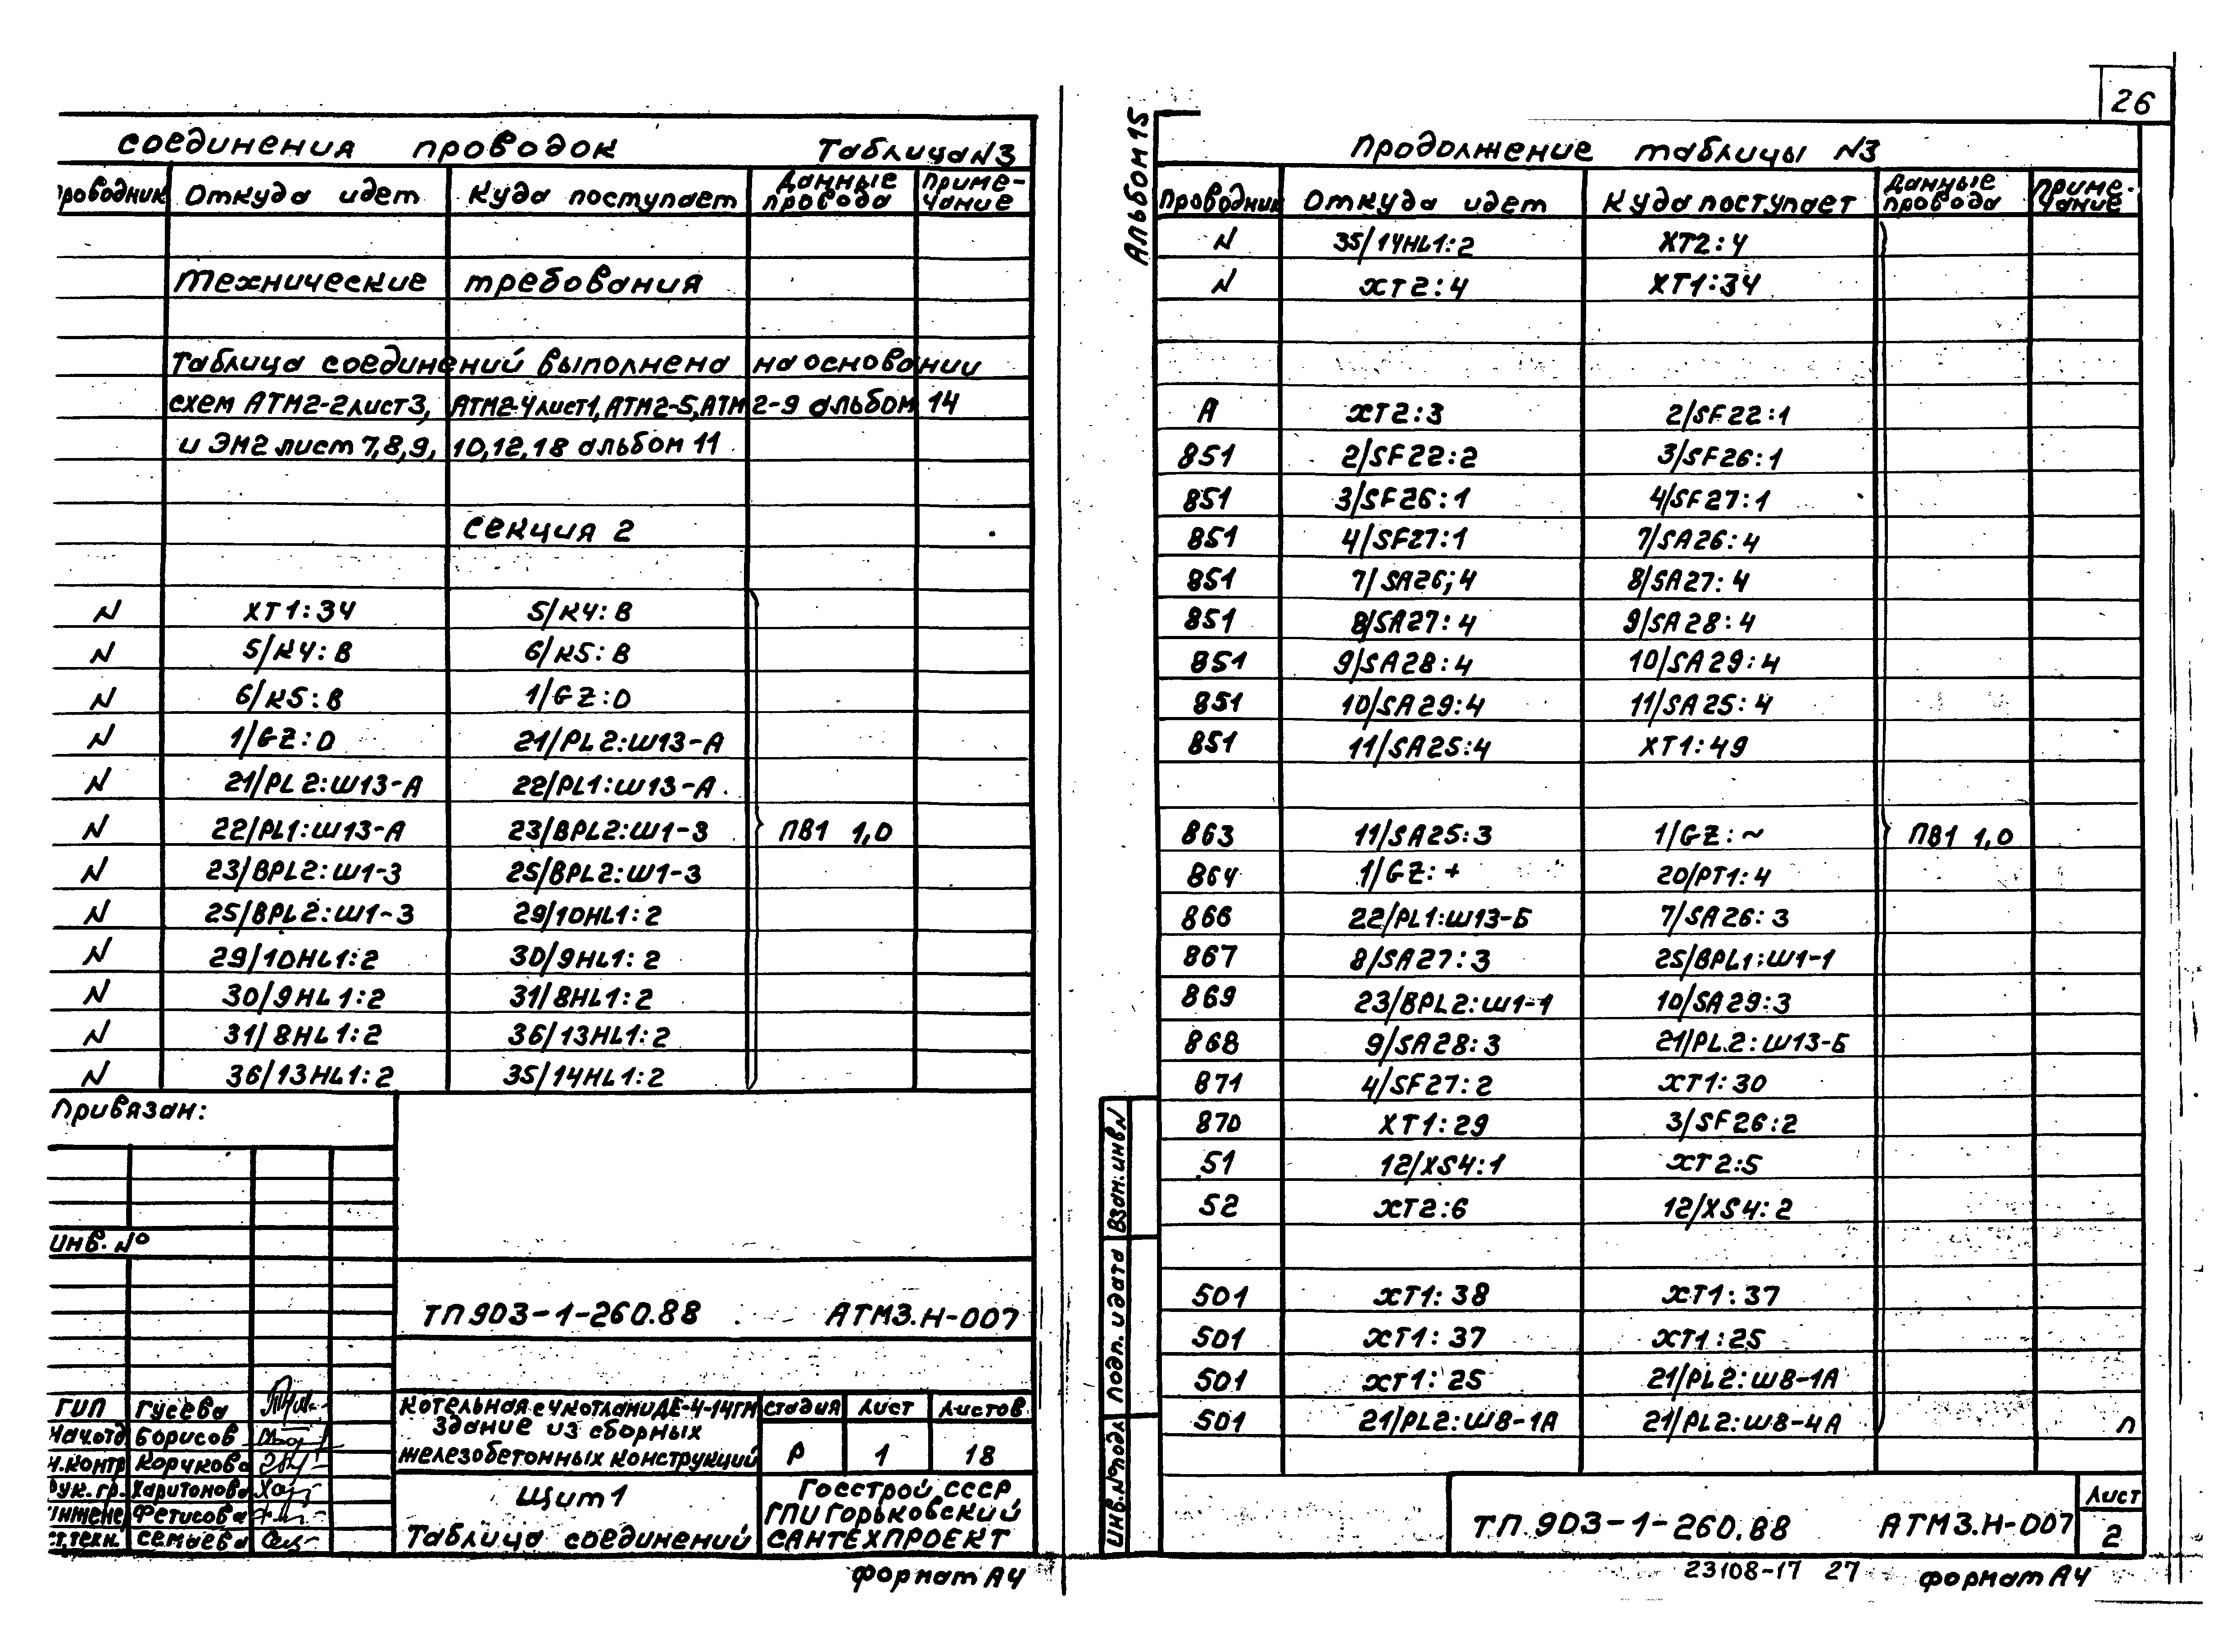 26
соединения проводок Таблица N3
Проводник Откуда идет Куда поступает Данные провода Приме-чание
Технические требования
Таблица соединений выполнена на основании
схем АТМ2-2 лист 3, АТМ2-4 лист 1, АТМ2-5, АТМ2-9 альбом 14
и ЭМ2 лист 7,8,9, 10,12,18 альбом 11
секция 2
N XT1:34 5/K4:B
N 5/K4:B 6/K5:B
N 6/K5:B 1/GZ:0
N 1/GZ:0 21/PL2:Ш13-А
N 21/PL2:Ш13-А 22/PL1:Ш13-А
N 22/PL1:Ш13-А 23/BPL2:Ш1-3 ПВ1 1,0
N 23/BPL2:Ш1-3 25/BPL2:Ш1-3
N 25/BPL2:Ш1-3 29/10HL1:2
N 29/10HL1:2 30/9HL1:2
N 30/9HL1:2 31/8HL1:2
N 31/8HL1:2 36/13HL1:2
N 36/13HL1:2 35/14HL1:2
Привязан:
инв. №
ТП 903-1-260.88 АТМ3.Н-007
ГИП Гусева
Нач.отд Борисов
н.контр Корчкова
рук.гр. Харитонова
инжене Фетисова
ст.техн. Семаева
Котельная с 4 котлами ДЕ-4-14ГМ
Здание из сборных
железобетонных конструкций
стадия лист листов
Р 1 18
Щит 1
Таблица соединений
Госстрой СССР
ГПИ Горьковский
САНТЕХПРОЕКТ
Формат А4
Альбом 15
Продолжение таблицы N3
Проводник Откуда идет Куда поступает Данные провода Приме-чание
N 35/14HL1:2 XT2:4
N XT2:4 XT1:34
А XT2:3 2/SF22:1
851 2/SF22:2 3/SF26:1
851 3/SF26:1 4/SF27:1
851 4/SF27:1 7/SA26:4
851 7/SA26;4 8/SA27:4
851 8/SA27:4 9/SA28:4
851 9/SA28:4 10/SA29:4
851 10/SA29:4 11/SA25:4
851 11/SA25:4 XT1:49
863 11/SA25:3 1/GZ:~ ПВ1 1,0
864 1/GZ:+ 20/PT1:4
866 22/PL1:Ш13-Б 7/SA26:3
867 8/SA27:3 25/BPL1:Ш1-1
869 23/BPL2:Ш1-1 10/SA29:3
868 9/SA28:3 21/PL.2:Ш13-Б
871 4/SF27:2 XT1:30
870 XT1:29 3/SF26:2
51 12/XS4:1 XT2:5
52 XT2:6 12/XS4:2
501 XT1:38 XT1:37
501 XT1:37 XT1:25
501 XT1:25 21/PL2:Ш8-1А
501 21/PL2:Ш8-1А 21/PL2:Ш8-4А п
Взам.инв N
Подп. и дата
Инв.№подл
ТП 903-1-260.88 АТМ3.Н-007
Лист
2
23108-17 27
Формат А4